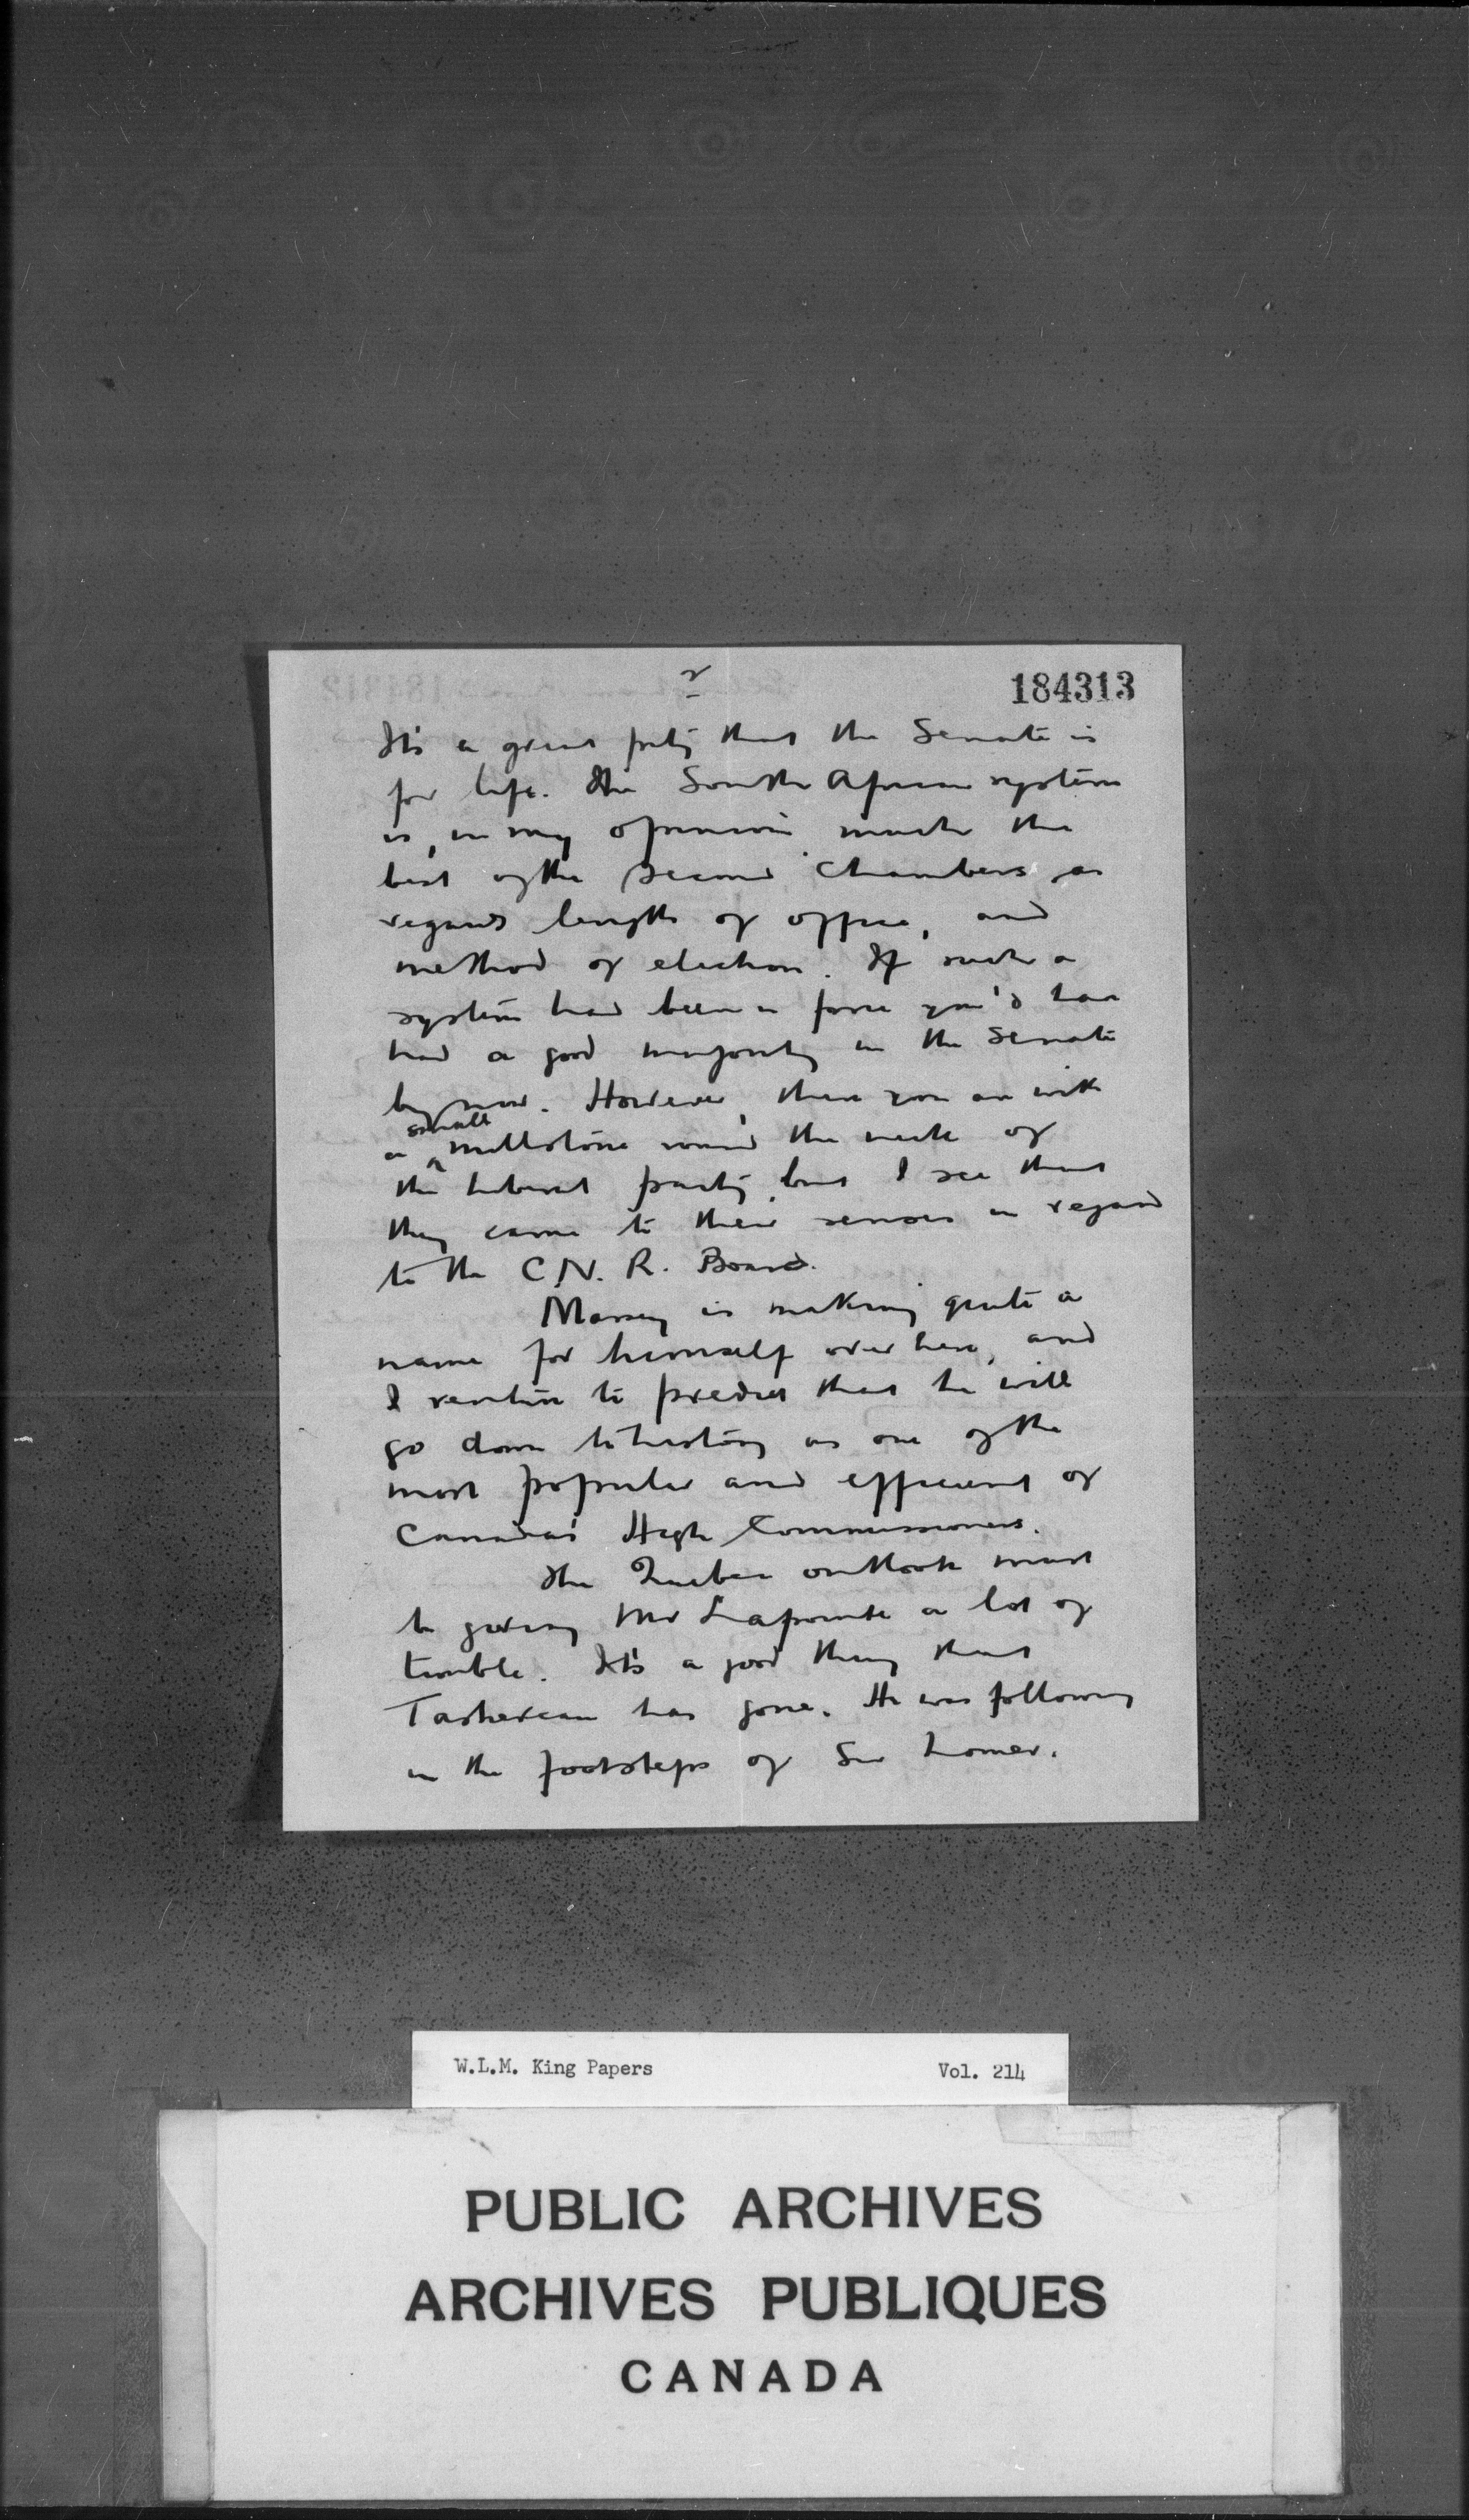 2
184313
It's a great pity that the Senate is
for life. The South African system
is, in my opinion, much the
best of the second chambers as
regards length of office, and
method of election. If such a
system had been in force you'd have
had a good majority in the Senate
by now. However, there you are with
a small millstone round the neck of
the Liberal party, but I see that
they came to their senses in regard
to the C.N.R. Board.
Massey is making quite a
name for himself over here, and
I venture to predict that he will
go down to history as one of the
most popular and efficient of
Canada's High Commissioners.
The Quebec outlook must
be giving Mr Lapointe a lot of
trouble. It's a good thing that
Taschereau has gone. He was following
in the footsteps of Sir Lomer.
W.L.M. King Papers Vol. 214
PUBLIC ARCHIVES
ARCHIVES PUBLIQUES
CANADA